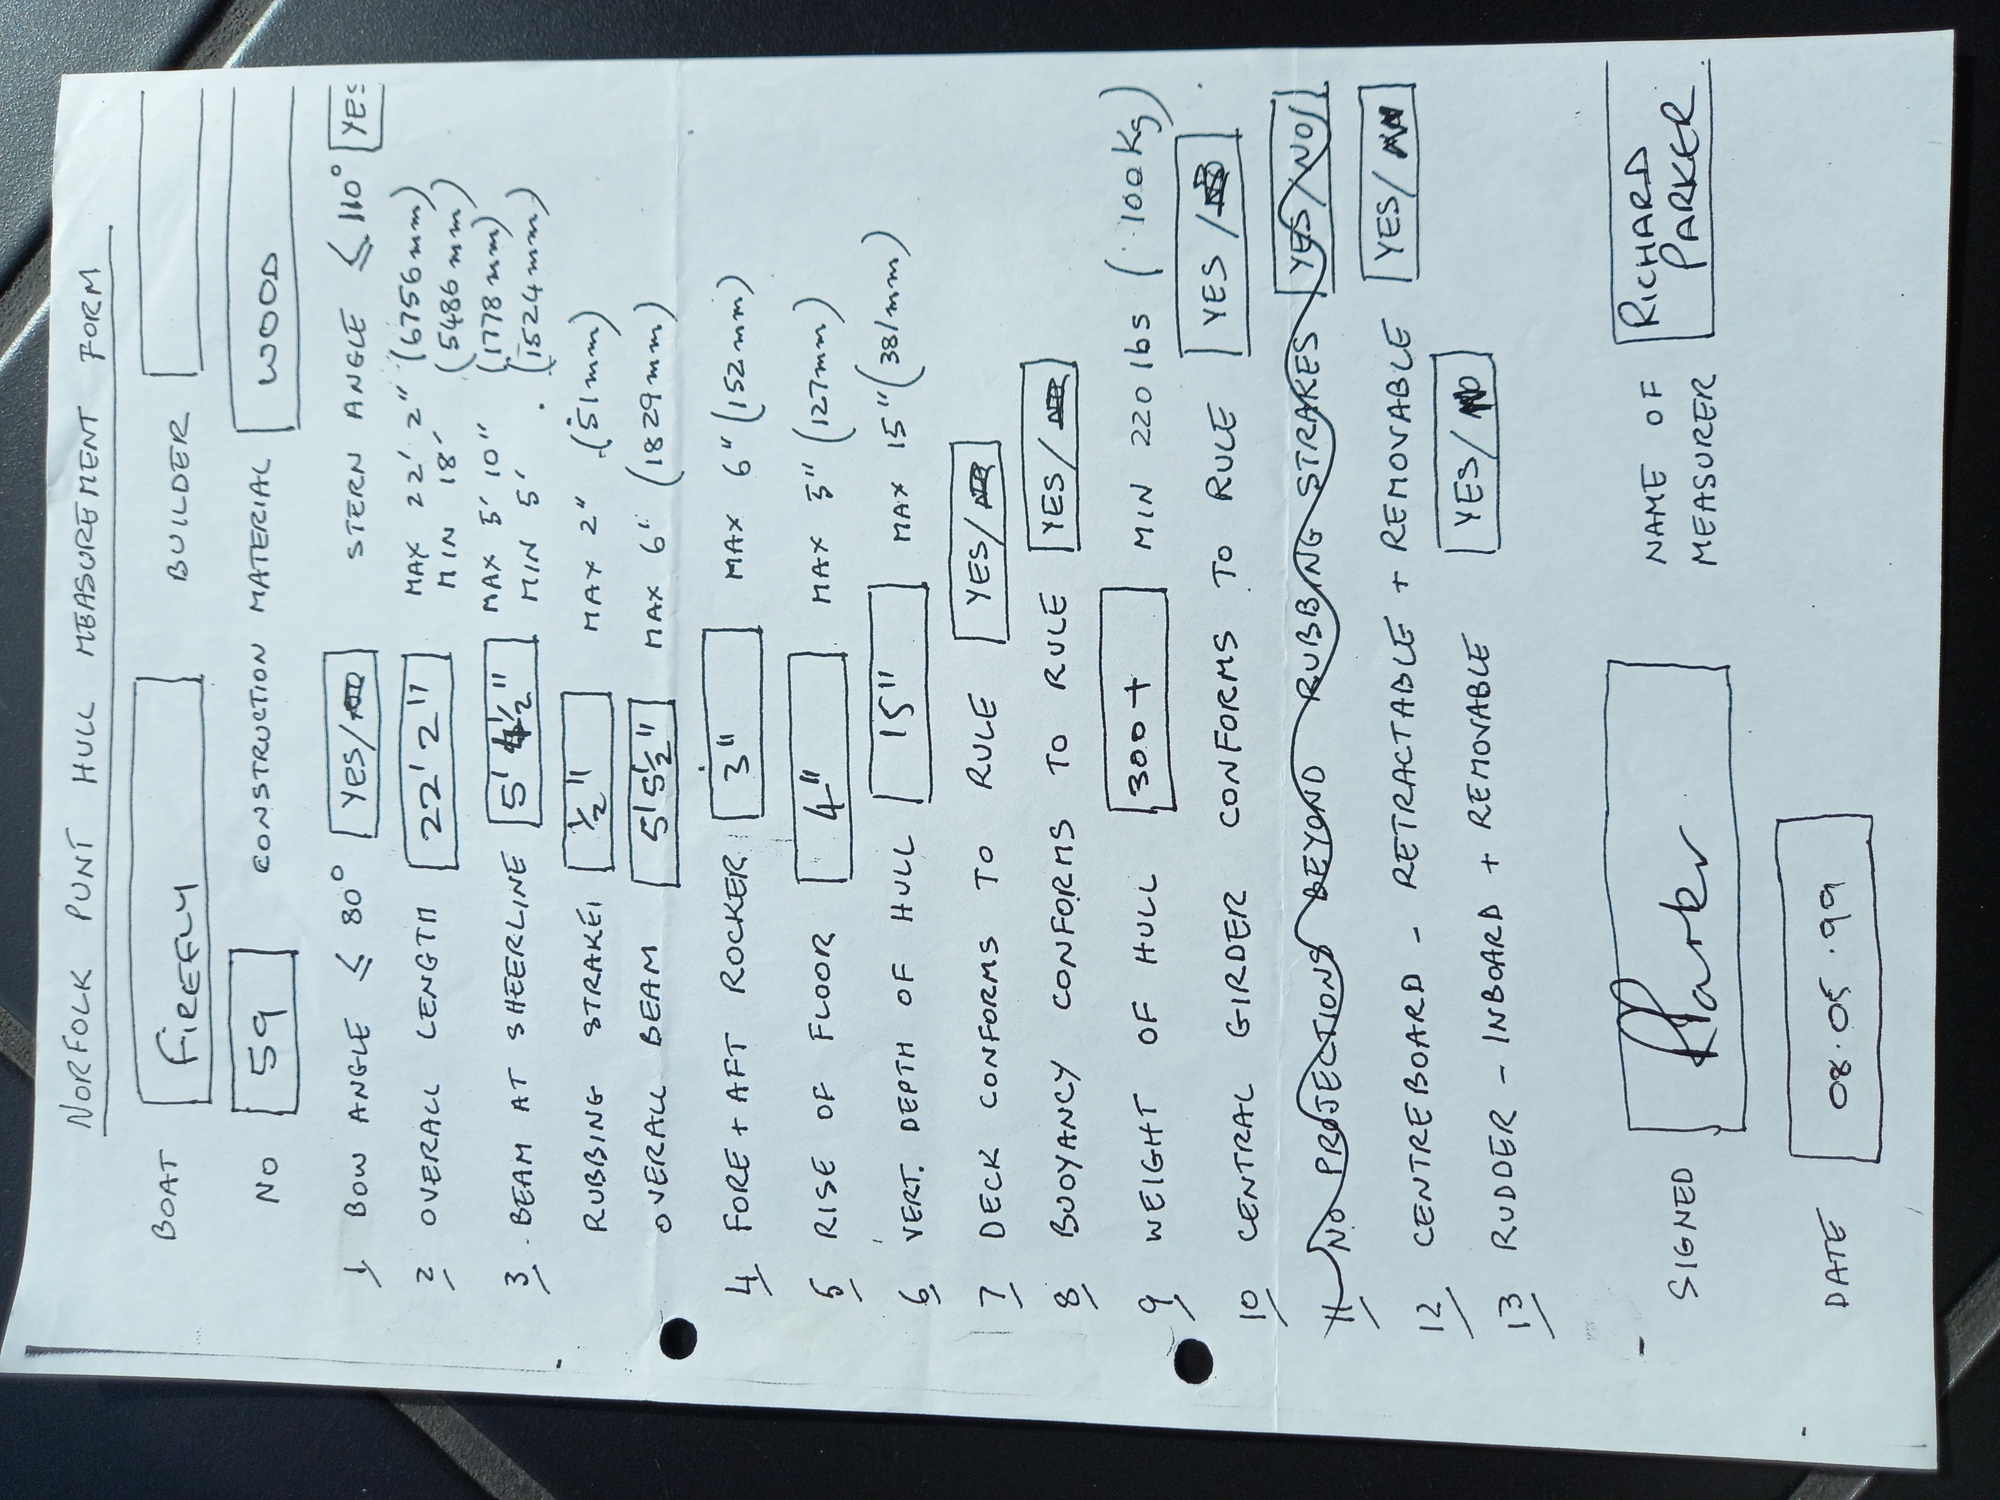 NORFOLK PUNT HULL MEASUREMENT FORM
BOAT FIREFLY BUILDER
NO 59 CONSTRUCTION MATERIAL WOOD
1 BOW ANGLE ≤ 80° YES/ STERN ANGLE ≤ 110° YES
2 OVERALL LENGTH 22' 2" MAX 22' 2" (6756mm)
MIN 18' (5486mm)
3 BEAM AT SHEERLINE 5' 4½" MAX 5' 10" (1778mm)
MIN 5' (1524mm)
RUBBING STRAKE ½" MAX 2" (51mm)
OVERALL BEAM 5'5½" MAX 6' (1829mm)
4 FORE + AFT ROCKER 3" MAX 6" (152mm)
5 RISE OF FLOOR 4" MAX 5" (127mm)
6 VERT. DEPTH OF HULL 15" MAX 15" (381mm)
7 DECK CONFORMS TO RULE YES/
8 BUOYANCY CONFORMS TO RULE YES/
9 WEIGHT OF HULL 300+ MIN 220 lbs (100Kg)
10 CENTRAL GIRDER CONFORMS TO RULE YES/
11 NO PROJECTIONS BEYOND RUBBING STRAKES YES/NO
12 CENTREBOARD - RETRACTABLE + REMOVABLE YES/
13 RUDDER - INBOARD + REMOVABLE YES/NO
SIGNED RParker NAME OF MEASURER RICHARD PARKER
DATE 08.05.99